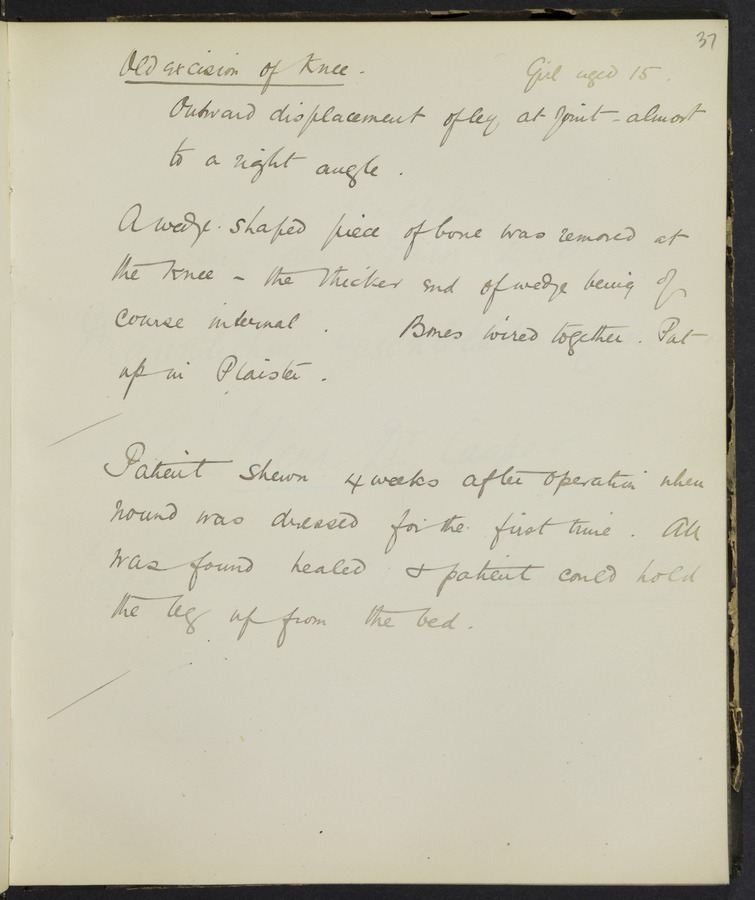 37
Old excision of Knee. Girl aged 15.
Outward displacement of leg at joint - almost
to a right angle.
A wedge-shaped piece of bone was removed at
the Knee - the thicker end of wedge being of
course internal. Bones wired together. Put
up in Plaister.
Patient shewn 4 weeks after operation when
wound was dressed for the first time. All
was found healed & patient could hold
the leg up from the bed.